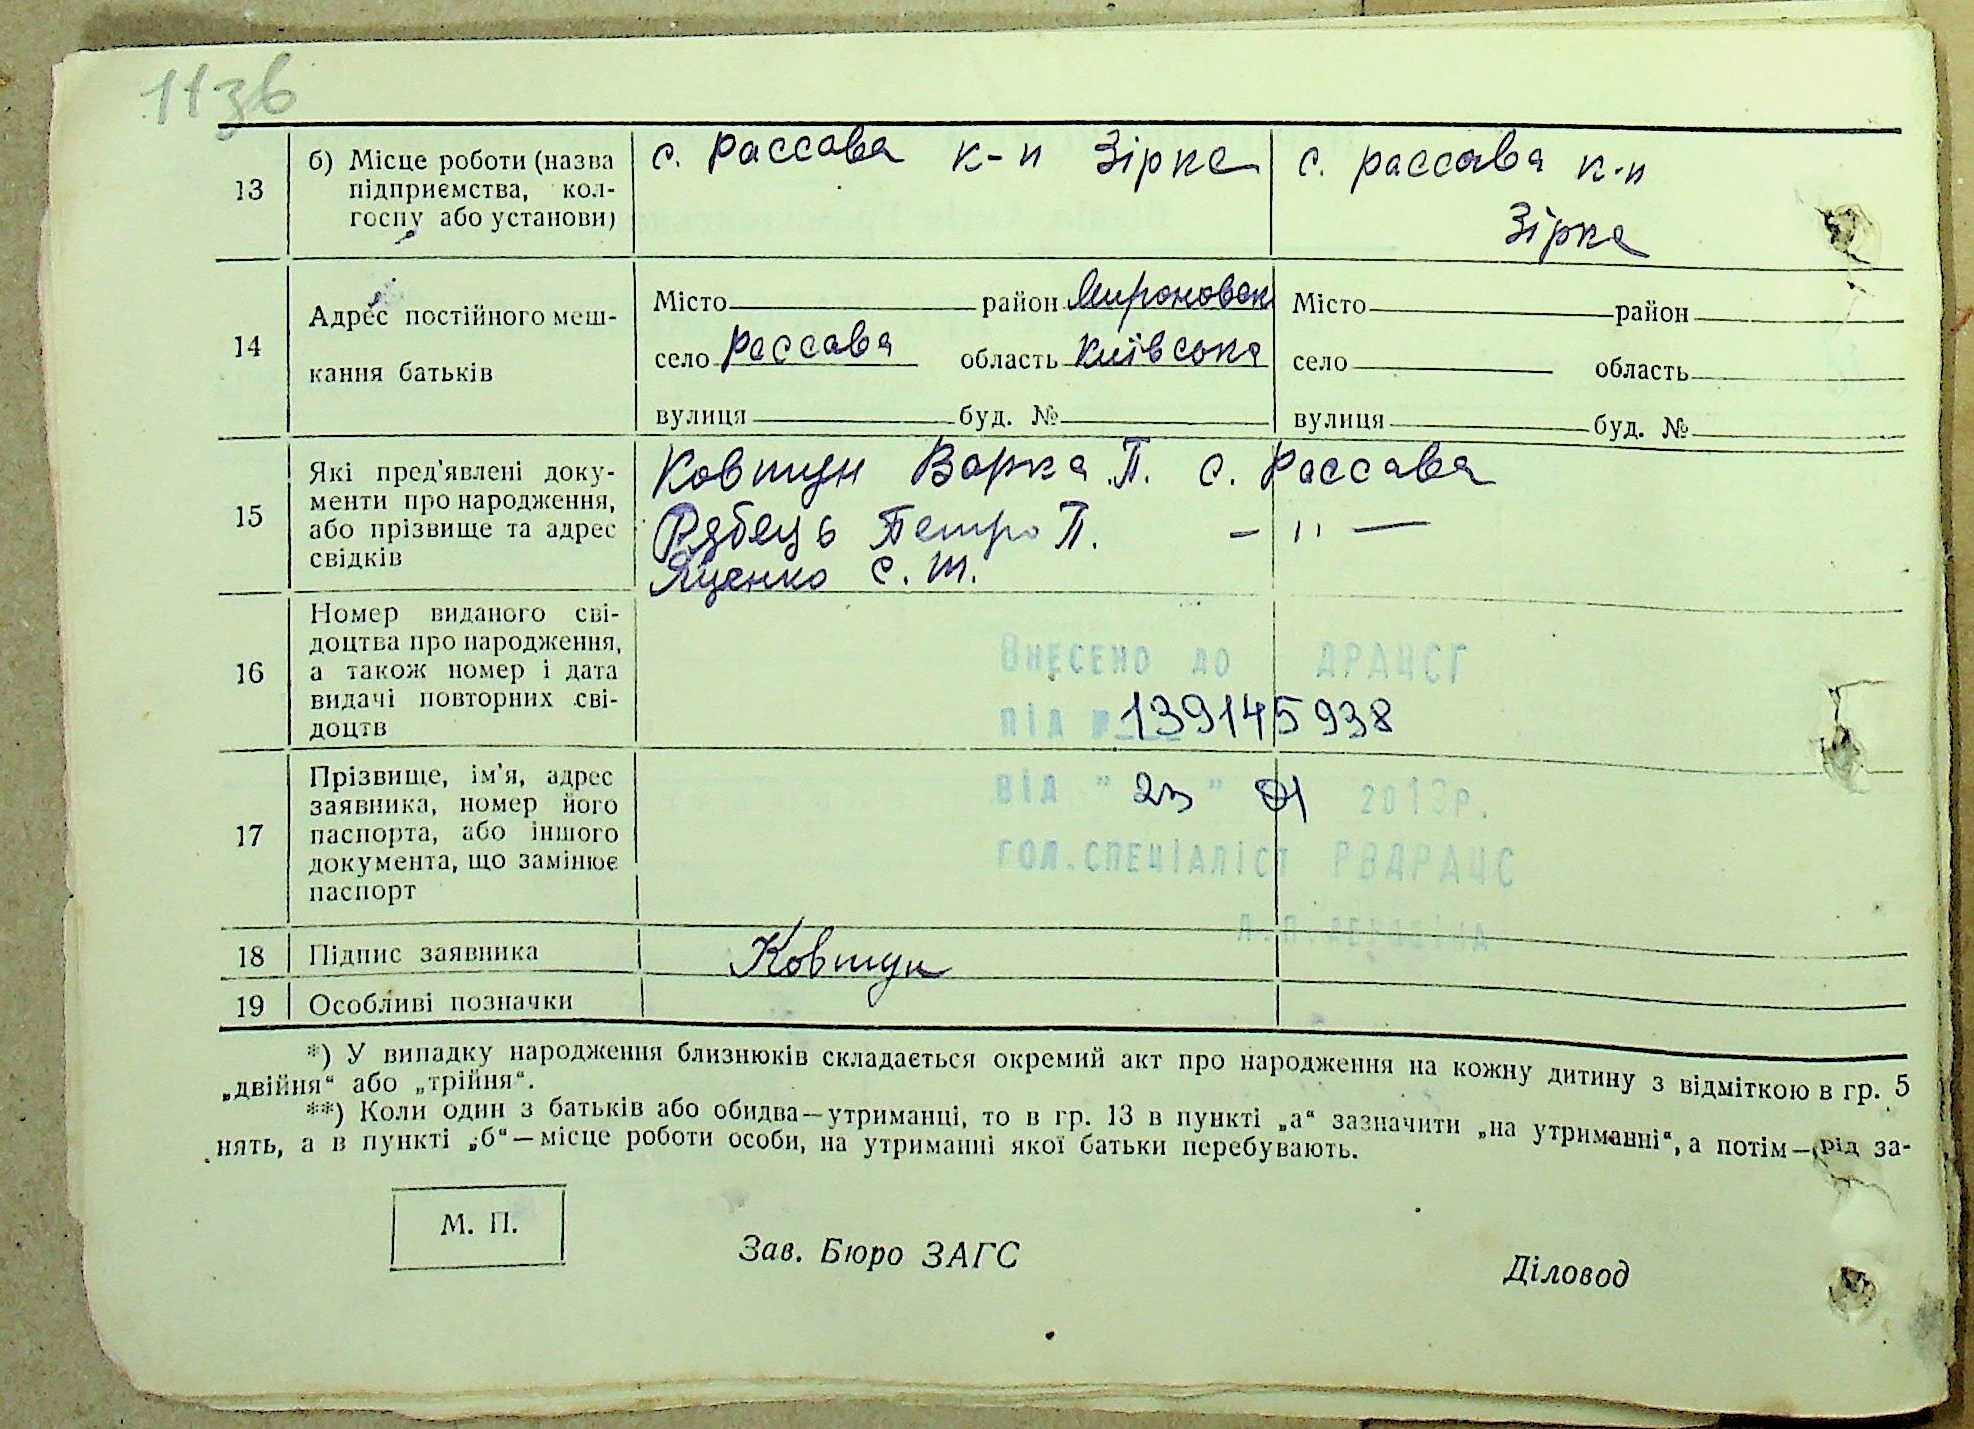 113б
13
б) Місце роботи (назва
підприємства, кол-
госпу або установи)
с. Рассава к-п Зірка
с. рассава к-п
Зірка
14
Адрес постійного меш-
кання батьків
Місто район Мироновск
село Рассава область Київська
вулиця буд. №
Місто район
село область
вулиця буд. №
15
Які пред'явлені доку-
менти про народження,
або прізвище та адрес
свідків
Ковтун Варка П. с. Рассава
Рябець Петро П. — " —
Яценко С. Т.
16
Номер виданого сві-
доцтва про народження,
а також номер і дата
видачі повторних сві-
доцтв
Внесено до ДРАЦСГ
під № 139145938
від " 23 " 01 2013р.
гол.спеціаліст РВДРАЦС
17
Прізвище, ім'я, адрес
заявника, номер його
паспорта, або іншого
документа, що замінює
паспорт
18
Підпис заявника
Ковтун
19
Особливі позначки
*) У випадку народження близнюків складається окремий акт про народження на кожну дитину з відміткою в гр. 5
„двійня“ або „трійня“.
**) Коли один з батьків або обидва—утриманці, то в гр. 13 в пункті „а“ зазначити „на утриманні“, а потім—рід за-
нять, а в пункті „б“—місце роботи особи, на утриманні якої батьки перебувають.
М. П.
Зав. Бюро ЗАГС
Діловод